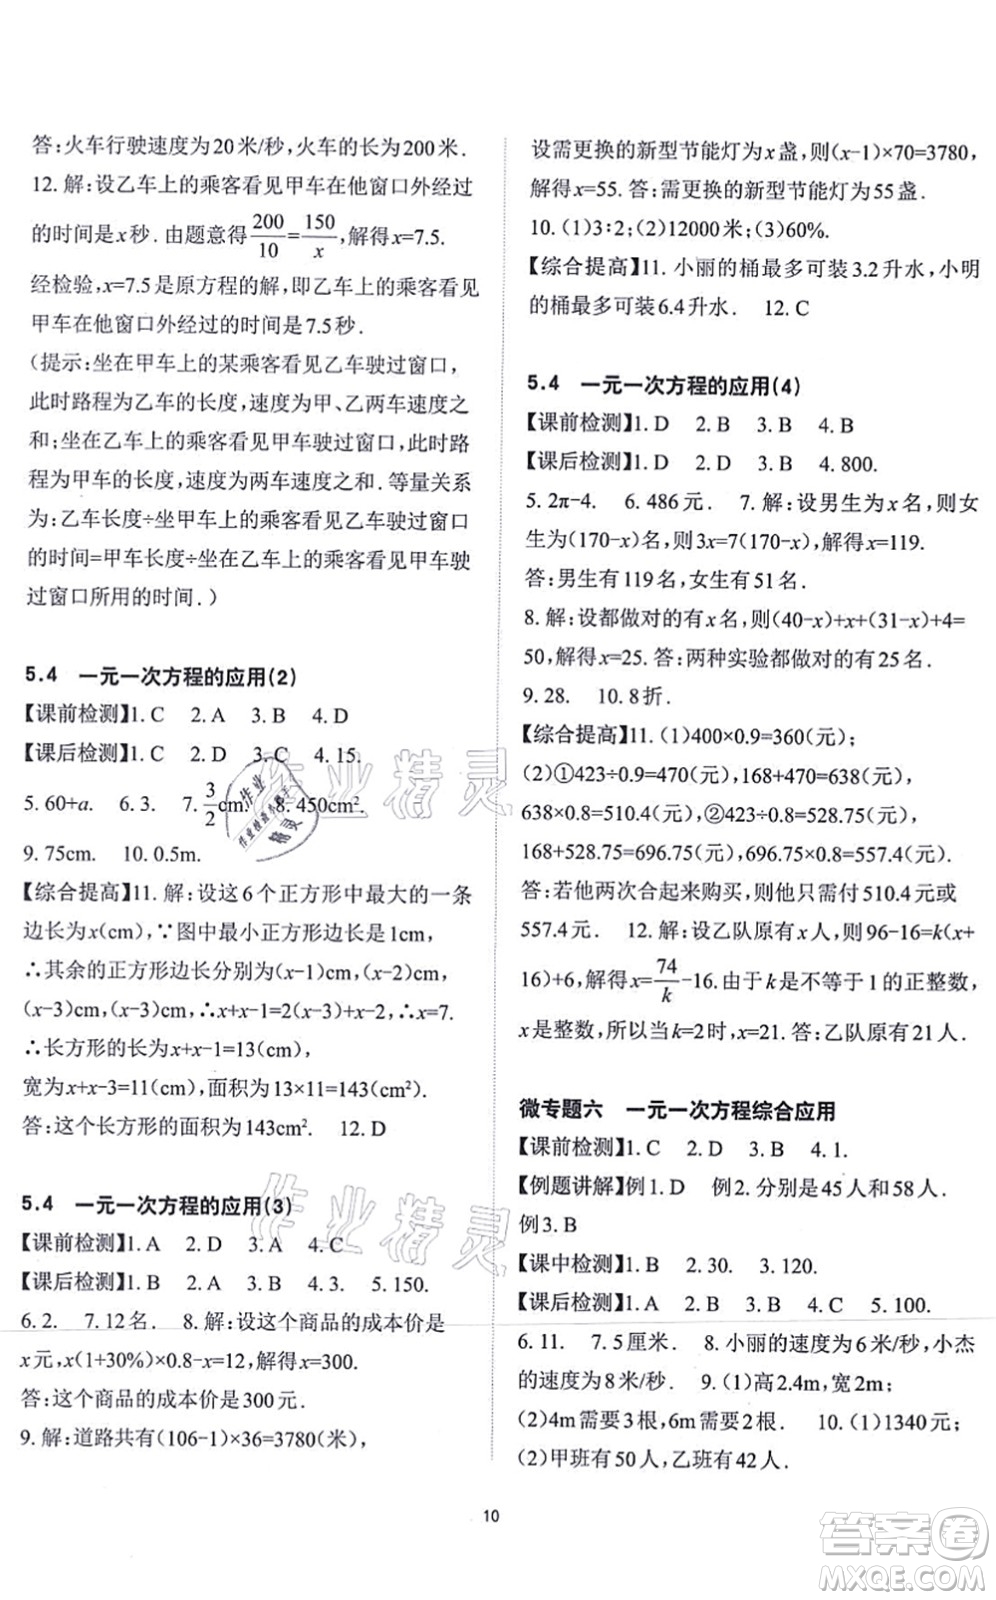 答:火车行驶速度为20米/秒,火车的长为200米.
12. 解:设乙车上的乘客看见甲车在他窗口外经过
的时间是x秒. 由题意得200/10=150/x,解得x=7.5.
经检验,x=7.5是原方程的解,即乙车上的乘客看见
甲车在他窗口外经过的时间是7.5秒.
(提示:坐在甲车上的某乘客看见乙车驶过窗口,
此时路程为乙车的长度,速度为甲、乙两车速度之
和;坐在乙车上的乘客看见甲车驶过窗口,此时路
程为甲车的长度,速度为两车速度之和. 等量关系
为:乙车长度÷坐甲车上的乘客看见乙车驶过窗口
的时间=甲车长度÷坐在乙车上的乘客看见甲车驶
过窗口所用的时间.)
5.4 一元一次方程的应用(2)
【课前检测】1. C 2. A 3. B 4. D
【课后检测】1. C 2. D 3. C 4. 15.
5. 60+a. 6. 3. 7. 3/2cm. 8. 450cm².
9. 75cm. 10. 0.5m.
【综合提高】11. 解:设这6个正方形中最大的一条
边长为x(cm),∵图中最小正方形边长是1cm,
∴其余的正方形边长分别为(x-1)cm,(x-2)cm,
(x-3)cm,(x-3)cm,∴x+x-1=2(x-3)+x-2,∴x=7.
∴长方形的长为x+x-1=13(cm),
宽为x+x-3=11(cm),面积为13×11=143(cm²).
答:这个长方形的面积为143cm². 12. D
5.4 一元一次方程的应用(3)
【课前检测】1. A 2. D 3. A 4. C
【课后检测】1. B 2. A 3. D 4. 3. 5. 150.
6. 2. 7. 12名. 8. 解:设这个商品的成本价是
x元,x(1+30%)×0.8-x=12,解得x=300.
答:这个商品的成本价是300元.
9. 解:道路共有(106-1)×36=3780(米),
设需更换的新型节能灯为x盏,则(x-1)×70=3780,
解得x=55. 答:需更换的新型节能灯为55盏.
10. (1)3∶2;(2)12000米;(3)60%.
【综合提高】11. 小丽的桶最多可装3.2升水,小明
的桶最多可装6.4升水. 12. C
5.4 一元一次方程的应用(4)
【课前检测】1. D 2. B 3. B 4. B
【课后检测】1. D 2. D 3. B 4. 800.
5. 2π-4. 6. 486元. 7. 解:设男生为x名,则女
生为(170-x)名,则3x=7(170-x),解得x=119.
答:男生有119名,女生有51名.
8. 解:设都做对的有x名,则(40-x)+x+(31-x)+4=
50,解得x=25. 答:两种实验都做对的有25名.
9. 28. 10. 8折.
【综合提高】11. (1)400×0.9=360(元);
(2)①423÷0.9=470(元),168+470=638(元),
638×0.8=510.4(元),②423÷0.8=528.75(元),
168+528.75=696.75(元),696.75×0.8=557.4(元).
答:若他两次合起来购买,则只需付510.4元或
557.4元. 12. 解:设乙队原有x人,则96-16=k(x+
16)+6,解得x=74/k-16. 由于k是不等于1的正整数,
x是整数,所以当k=2时,x=21. 答:乙队原有21人.
微专题六 一元一次方程综合应用
【课前检测】1. C 2. D 3. B 4. 1.
【例题讲解】例1. D 例2. 分别是45人和58人.
例3. B
【课中检测】1. B 2. 30. 3. 120.
【课后检测】1. A 2. B 3. D 4. C 5. 100.
6. 11. 7. 5厘米. 8. 小丽的速度为6米/秒,小杰
的速度为8米/秒. 9. (1)高2.4m,宽2m;
(2)4m需要3根,6m需要2根. 10. (1)1340元;
(2)甲班有50人,乙班有42人.
10
作业精灵
作业精灵
答案圈
MXQE.COM